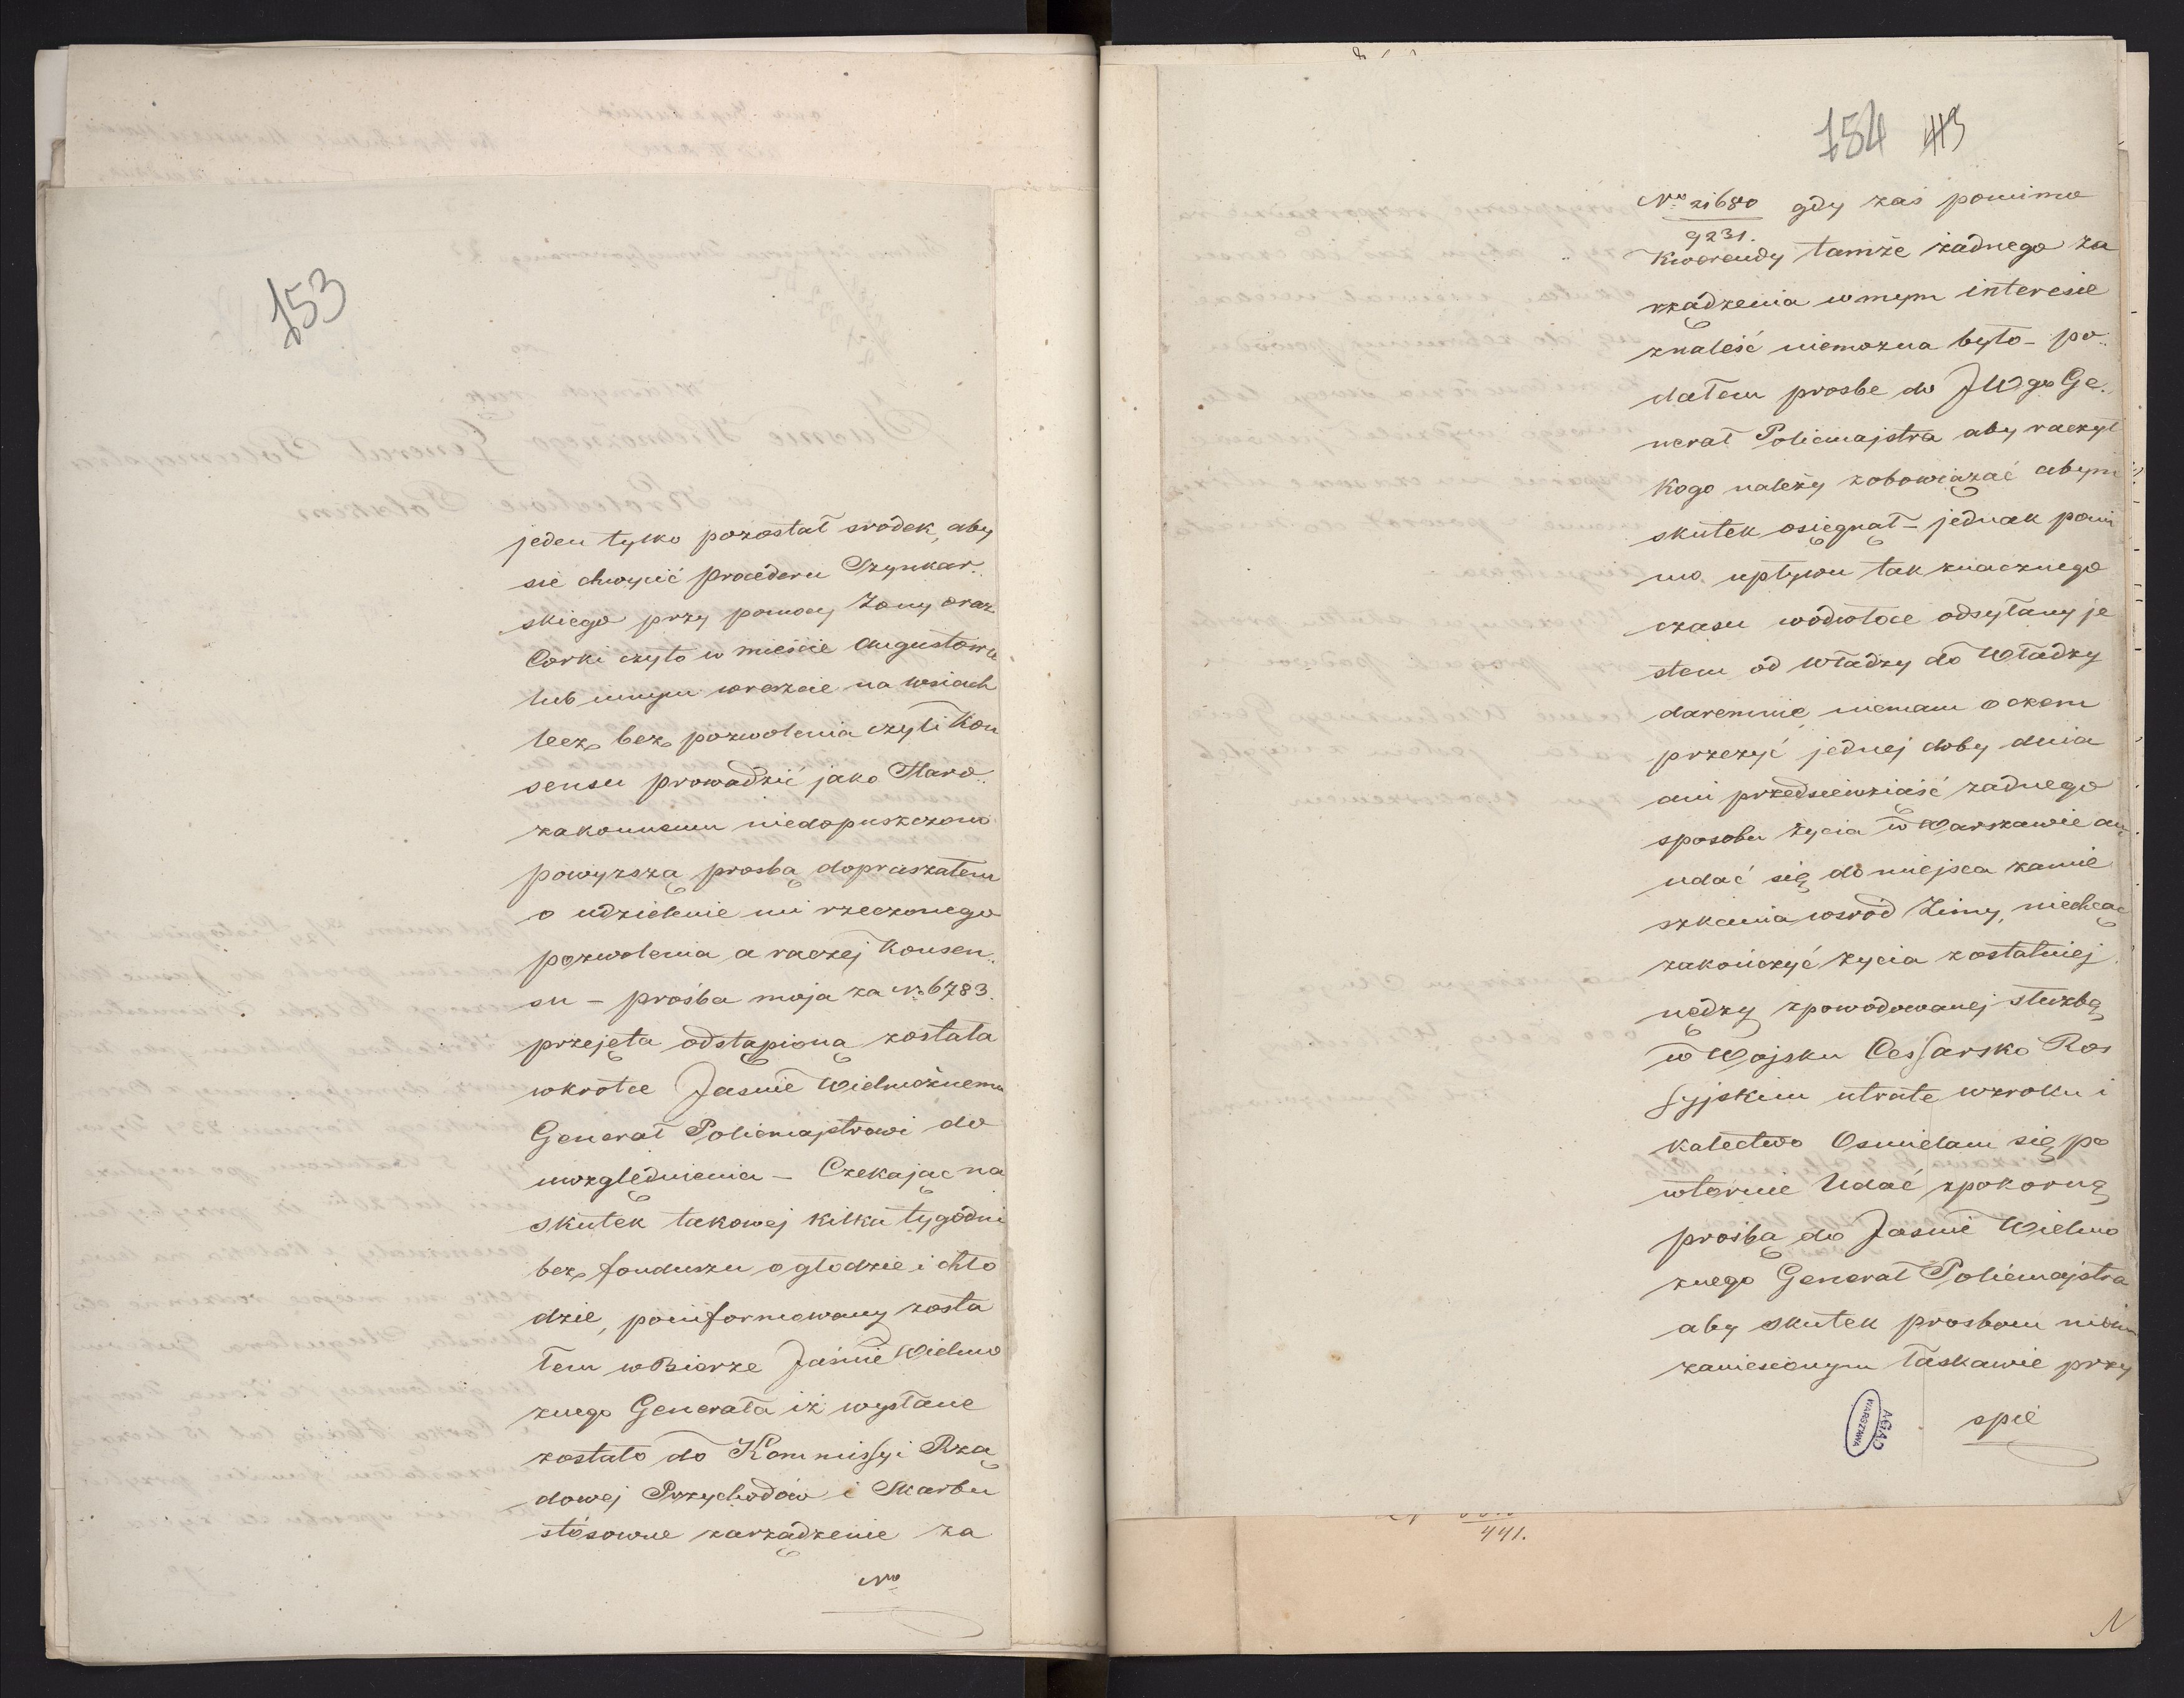 153
jeden tylko pozostał srodek, aby
sie chwycić procederu Szynkar..
skiego przy pomocy Zony oraz
Corki czyto w mieście Augustowie
lub innym wreszcie na wsiach
lecz bez pozwolenia czyli Kon
sensu prowadzić jako Staro..
zakonnemu niedopuszczono
powyzszą prosbą dopraszałem
o udzielenie mi rzeczonego
pozwolenia a raczej Konsen..
su – prośba moja za No 6783.
przejęta odstąpioną została
wkrotce Jasnie Wielmożnemu
Generał Policmajstrowi do
uwzględnienia – Czekając na
skutek takowej kilku tygodni
bez funduszu o głodzie i chło
dzie, poinformowany zosta
łem w Biorze Jaśnie Wielmo
znego Generała iż wysłane
zostało do Kommissyi Rzą
dowej Przychodów i Skarbu
stósowne zarządzenie za
Nro
154 113
Nro 21680 gdy zaś pomimo
9231.
Kwerendy tamże żadnego za
rządzenia w mym interesie
znaleść niemozna było – po..
dałem prosbe do JWgo Ge..
nerał Policmajstra aby raczył
Kogo należy zobowiązać abym
skutek osięgnął – jednak pomi
mo upływu tak znacznego
czasu wodwłoce odsyłany je
stem od Władzy do Władzy
daremnie niemam o czem
przezyć jednej doby dnia
ani przedsiewziąść zadnego
sposobu życia w Warszawie an
udać się do miejsca zamie
szkania wsród Zimy, niechcąc
zakończyć życia zostatniej
nędzy spowodowanej służbą
w Wojsku Cessarsko Ros
syjskim utrate wzroku i
kalectwo Osmielam się po
wtornie Udać zpokorną
prośbą do Jaśnie Wielmo
znego Generał Policmajstra
aby skutek prosbom
zaniesionym łaskawie przy
spie
AGAD
WARSZAWA
441.
N